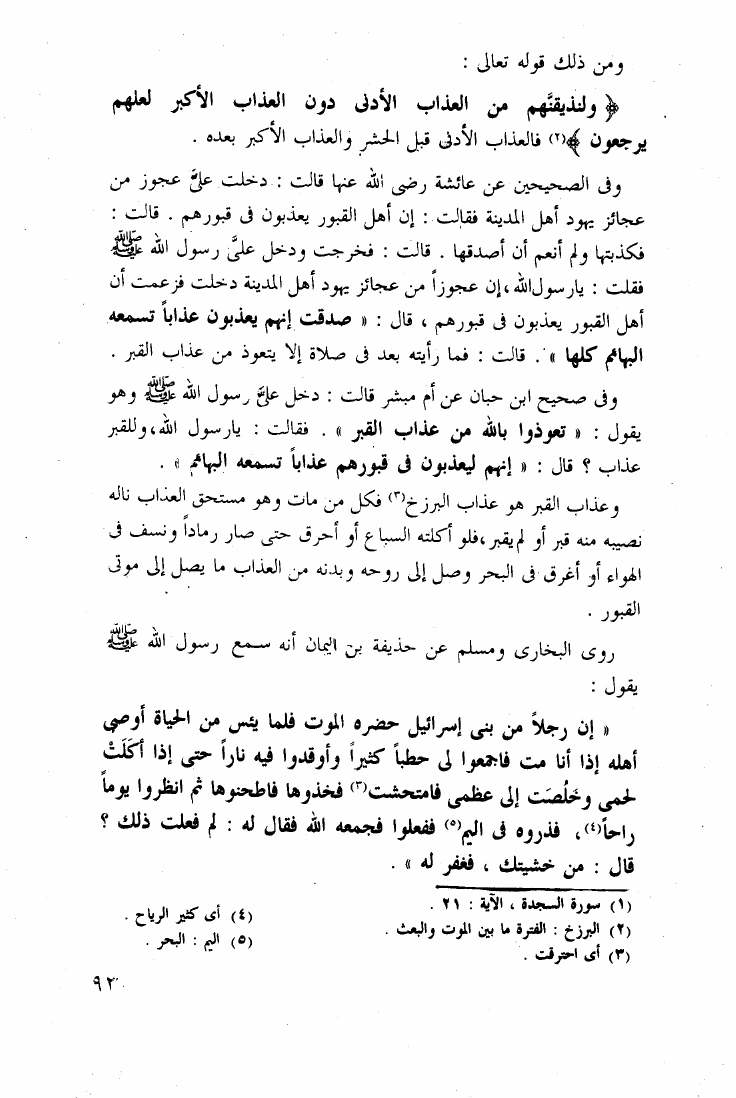 ومن ذلك قوله تعالى :
﴿ ولنذيقنَّهم من العذاب الأدنى دون العذاب الأكبر لعلهم
يرجعون ﴾(٢) فالعذاب الأدنى قبل الحشر والعذاب الأكبر بعده .
وفى الصحيحين عن عائشة رضى الله عنها قالت : دخلت علىَّ عجوز من
عجائز يهود أهل المدينة فقالت : إن أهل القبور يعذبون فى قبورهم . قالت :
فكذبتها ولم أنعم أن أصدقها . قالت : فخرجت ودخل علىَّ رسول الله ﷺ
فقلت : يارسول الله ، إن عجوزاً من عجائز يهود أهل المدينة دخلت فزعمت أن
أهل القبور يعذبون فى قبورهم ، قال : « صدقت إنهم يعذبون عذاباً تسمعه
البهائم كلها » . قالت : فما رأيته بعد فى صلاة إلا يتعوذ من عذاب القبر .
وفى صحيح ابن حبان عن أم مبشر قالت : دخل علىَّ رسول الله ﷺ وهو
يقول : « تعوذوا بالله من عذاب القبر » . فقالت : يارسول الله ، وللقبر
عذاب ؟ قال : « إنهم ليعذبون فى قبورهم عذاباً تسمعه البهائم » .
وعذاب القبر هو عذاب البرزخ(٣) فكل من مات وهو مستحق العذاب ناله
نصيبه منه قبر أو لم يقبر ، فلو أكلته السباع أو أحرق حتى صار رماداً ونسف فى
الهواء أو أغرق فى البحر وصل إلى روحه وبدنه من العذاب ما يصل إلى موتى
القبور .
روى البخارى ومسلم عن حذيفة بن اليمان أنه سمع رسول الله ﷺ
يقول :
« إن رجلاً من بنى إسرائيل حضره الموت فلما يئس من الحياة أوصى
أهله إذا أنا مت فاجمعوا لى حطباً كثيراً وأوقدوا فيه ناراً حتى إذا أكَلَتْ
لحمى وخَلُصَت إلى عظمى فامتحشت(٣) فخذوها فاطحنوها ثم انظروا يوماً
راحاً(٤) ، فذروه فى اليم(٥) ففعلوا فجمعه الله فقال له : لم فعلت ذلك ؟
قال : من خشيتك ، فغفر له » .
(١) سورة السجدة ، الآية : ٢١ .
(٢) البرزخ : الفترة ما بين الموت والبعث .
(٣) أى احترقت .
(٤) أى كثير الرياح .
(٥) اليم : البحر .